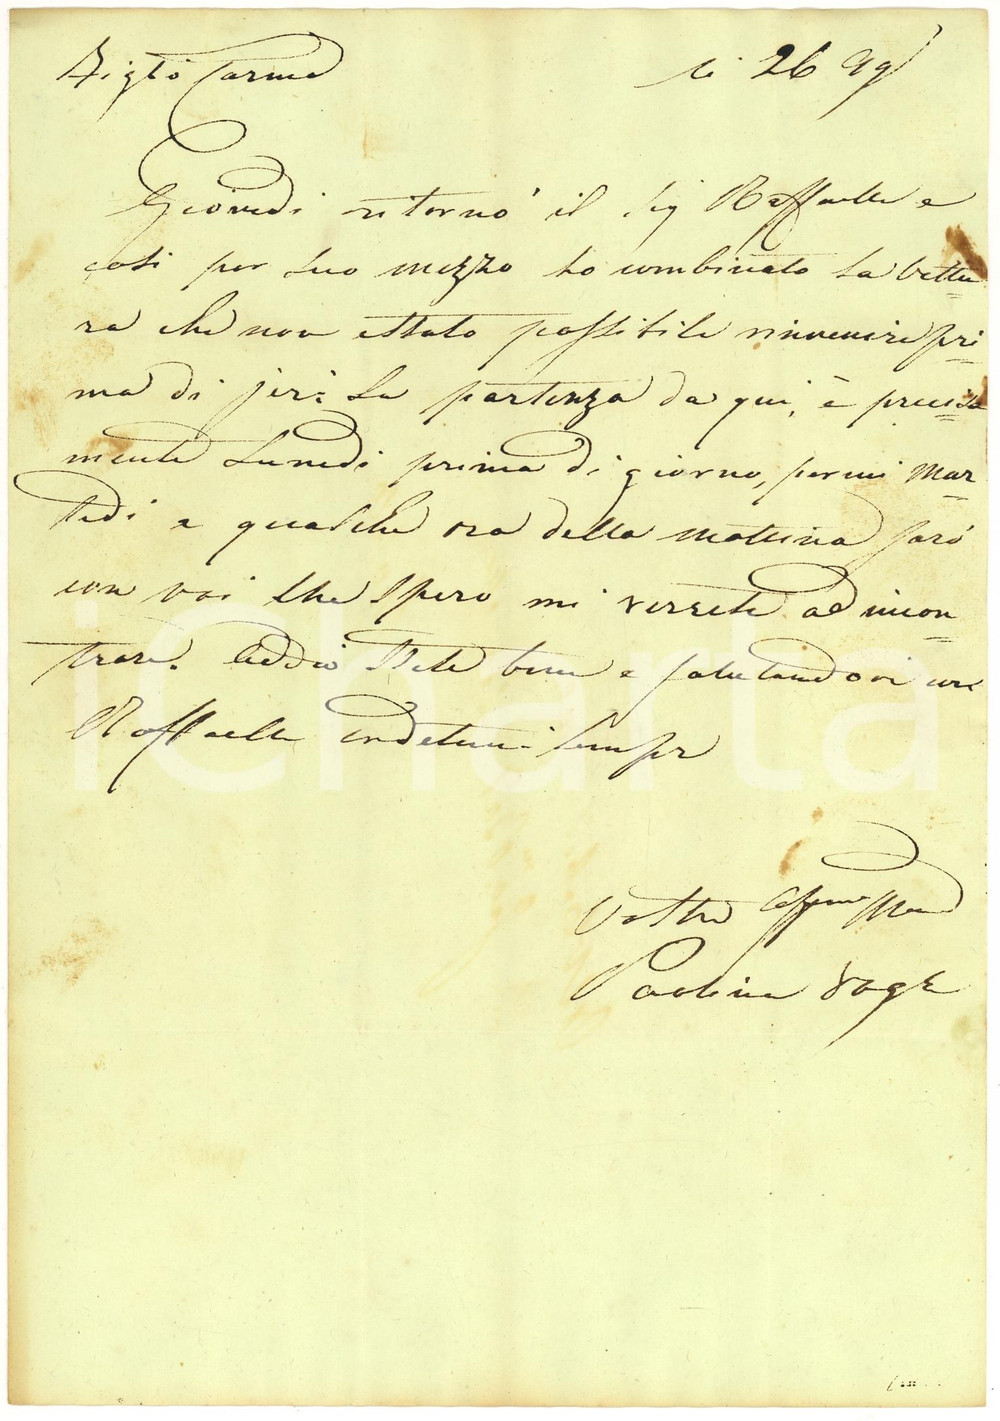 li 26
Giovedi ritornò il Sig Raffaelle e
cosi per suo mezzo ho combinato la Vettu
ra che non estato possibile rinvenire pri
ma di jeri: La partenza da qui, è precisa
mente Lunedi prima di giorno, per cui Mar
tedi a qualche ora della mattina sarò
con voi che spero mi verrete ad incon
trare. Addio State bene e salutandovi
Raffaelle sempr
Vostra
Paolina
iCharta